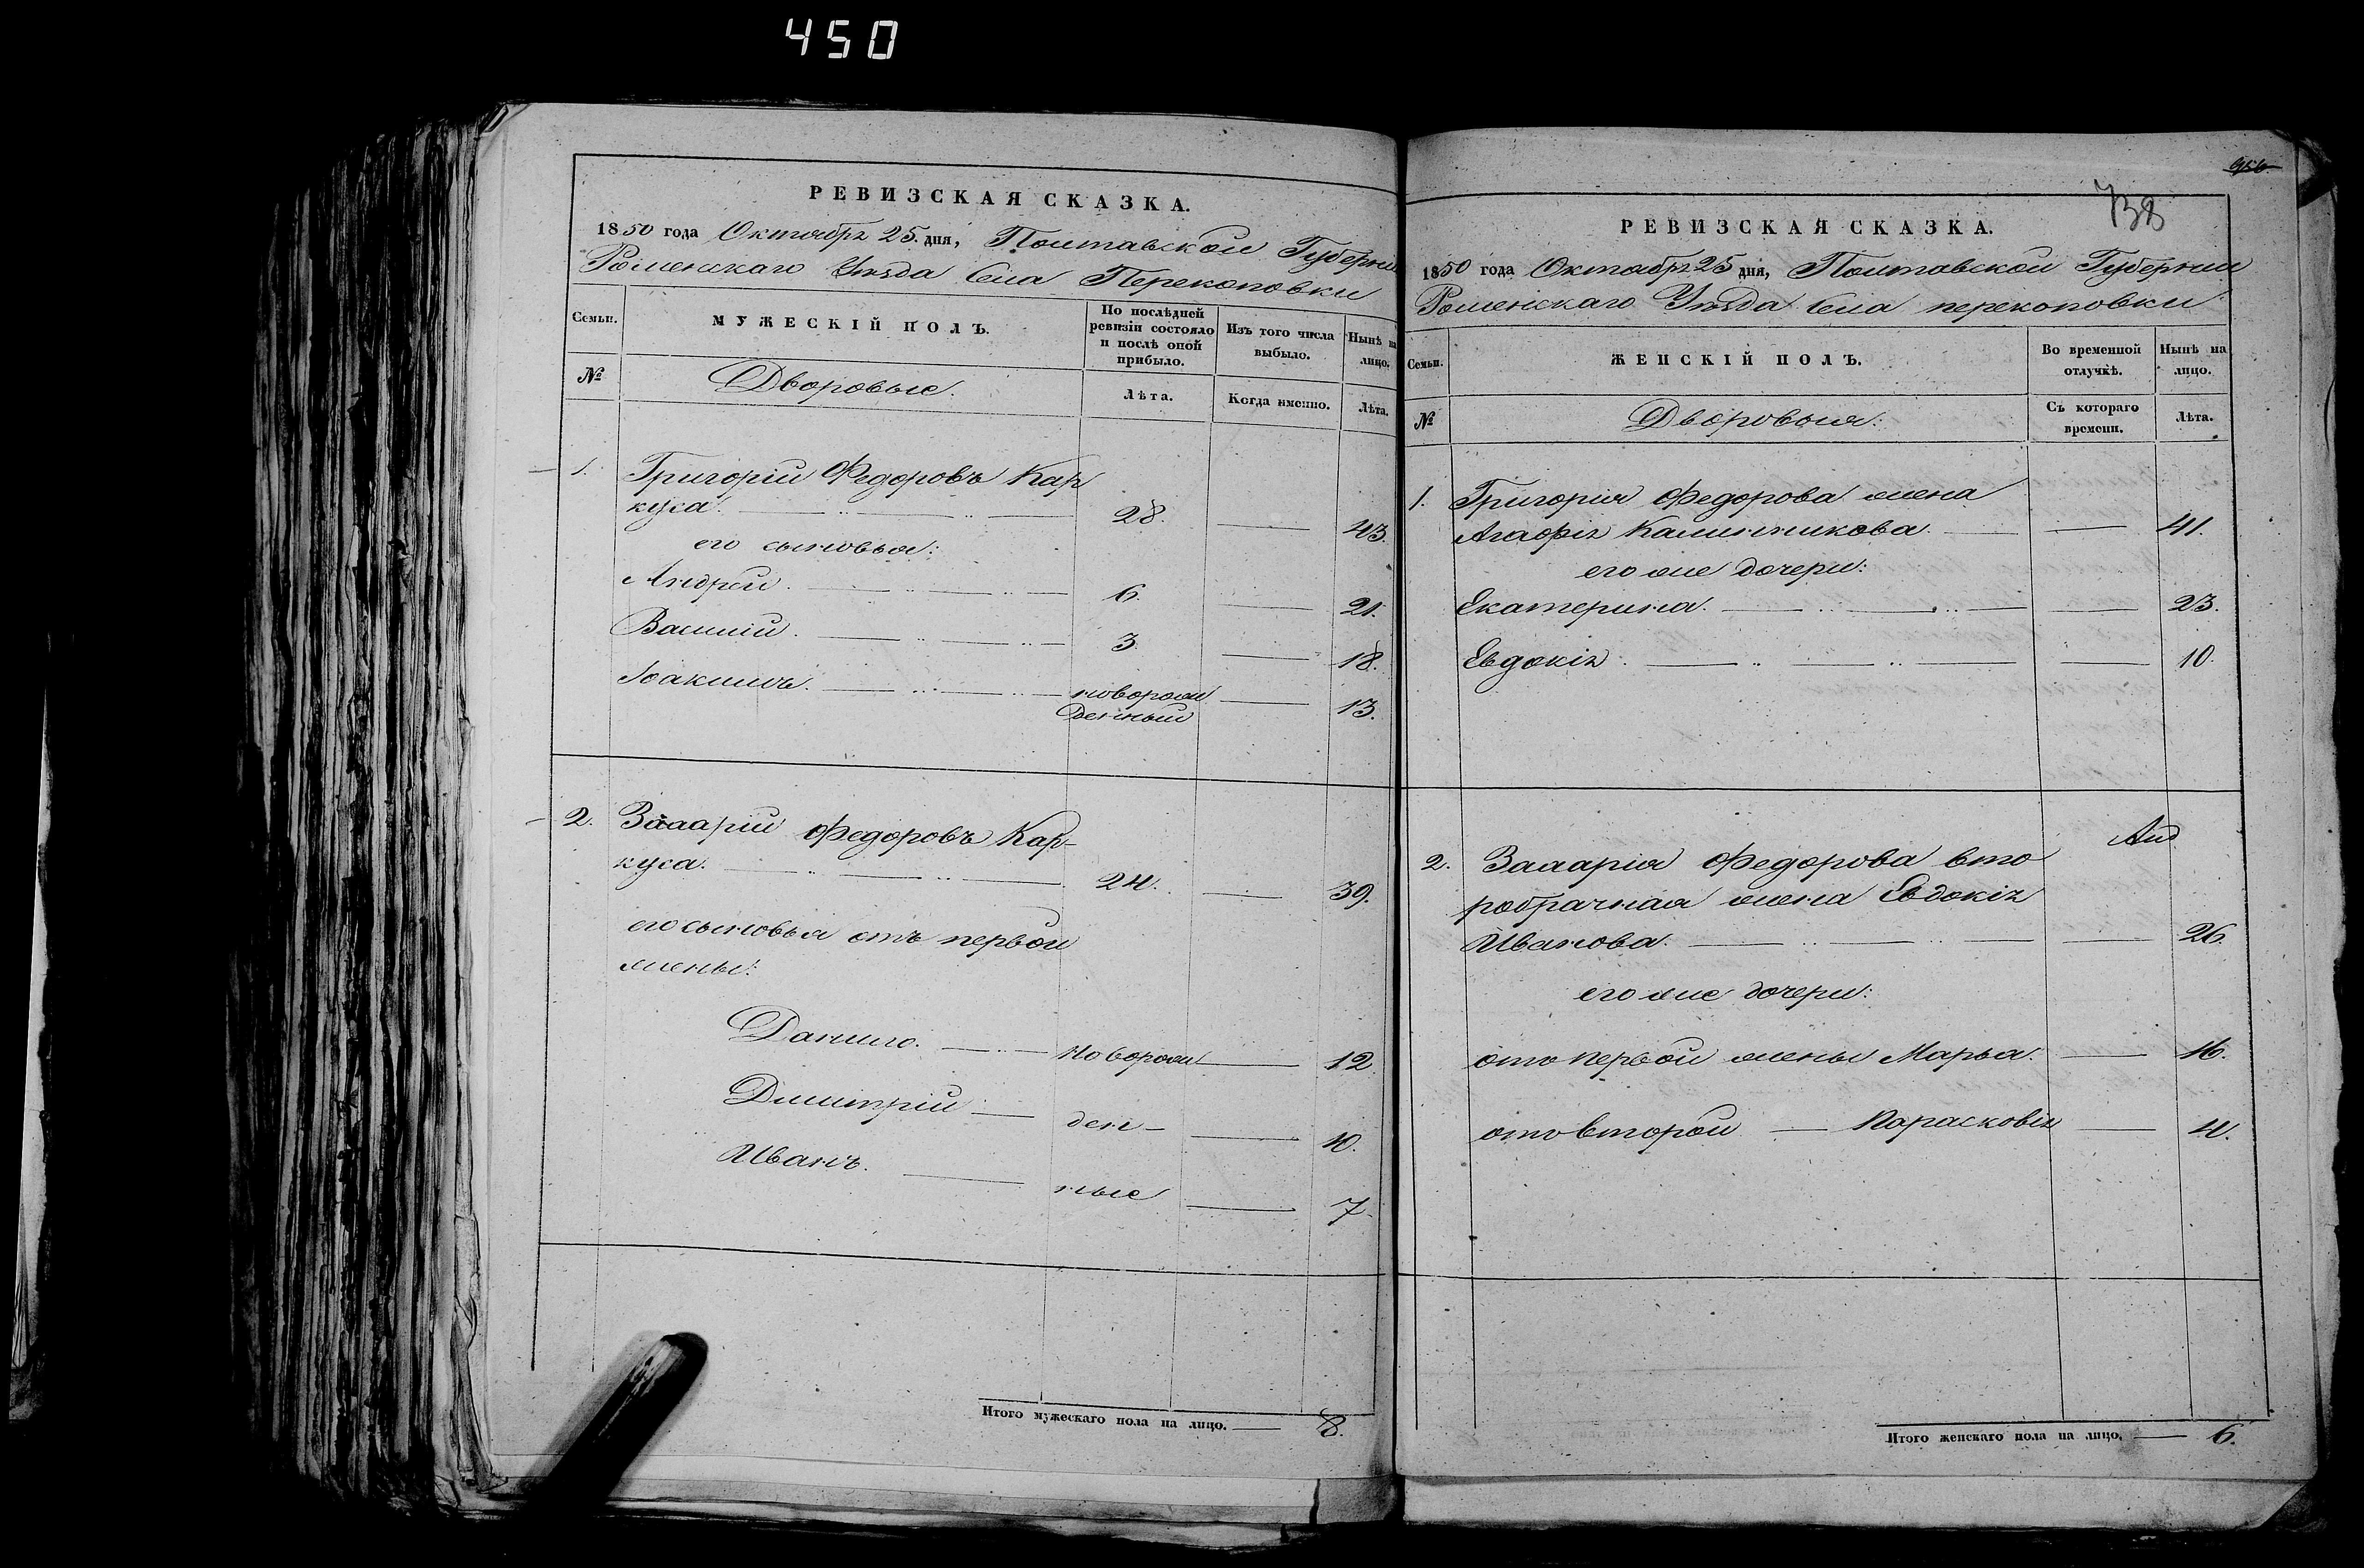 450
РЕВИЗСКАЯ СКАЗКА.
1850 года Октября 25. дня, Полтавской Губернии
Роменскаго Уѣзда Села Перекоповки
Семьи.
МУЖЕСКІЙ ПОЛЪ.
По послѣдней ревизіи состояло и послѣ оной прибыло.
Изъ того числа выбыло.
Нынѣ на лицо.
№
Дворовые.
Лѣта.
Когда именно.
Лѣта.
1. Григорій Федоровъ Кар
куса. 28. 43.
его сыновья:
Андрей. 6. 21.
Василій. 3. 18.
Іоакимъ. новорож 13.
денный
2. Захарій Федоровъ Кар-
куса. 24. 39.
его сыновья отъ первой
жены:
Данило. новорож 12.
Димитрій ден- 10.
Иванъ. ные 7.
Итого мужескаго пола на лицо. 8.
738
РЕВИЗСКАЯ СКАЗКА.
1850 года Октября 25 дня, Полтавской Губернии
Роменскаго Уѣзда Села перекоповки
Семьи.
ЖЕНСКІЙ ПОЛЪ.
Во временной отлучкѣ.
Нынѣ на лицо.
№
Дворовыя:
Съ котораго времени.
Лѣта.
1. Григорія Федорова жена
Агафія Калинникова. 41.
его же дочери:
Екатерина. 23.
Евдокія. 10.
2. Захарія Федорова вто
робрачная жена Евдокія
Иванова. 26.
его же дочери:
отъ первой жены Марья. 16.
отъ второй Парасковія 4.
Итого женскаго пола на лицо. 6.